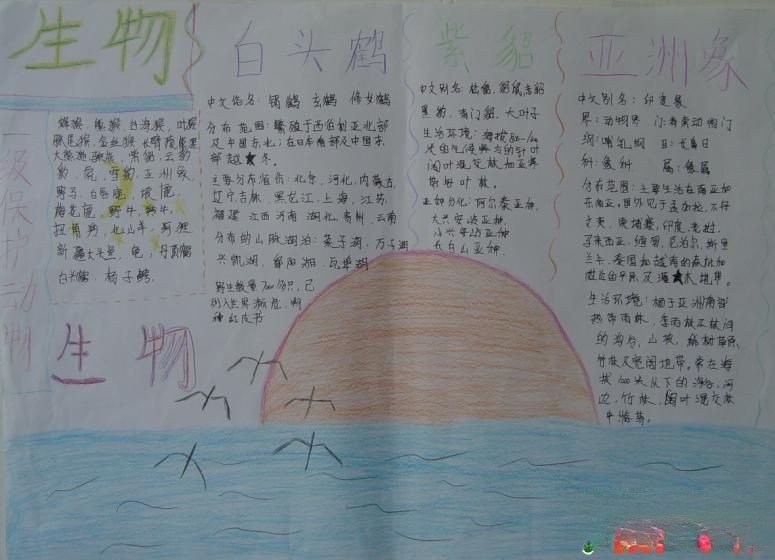 生物
一级保护动物
蜂猴、熊猴、台湾猴、叶猴
豚尾猴、金丝猴、长臂猿
大熊猫 紫貂、云豹
豹、虎、雪豹、亚洲象、
野马、白唇鹿、坡鹿、
梅花鹿、野牛、
扭角羚、北山羊、河狸
新疆大头鱼、龟、丹顶鹤
白头鹤、扬子鳄
生物
白头鹤
中文俗名：锅鹤 玄鹤 修女鹤
分布范围：繁殖于西伯利亚北部
及中国东北；在日本南部及中国东
部越★冬。
主要分布省份：北京、河北、内蒙古、
辽宁、吉林、黑龙江、上海、江苏、
福建 江西 河南 湖北、贵州、云南
分布的山脉湖泊：菜子湖、万子湖
兴凯湖、鄱阳湖、瓦埠湖
野生数量 只，已
列入世界濒危，
种红皮书
紫貂
中文别名：
黑豹、 大叶子
生活环境：海拔800-1600
米的气候 的针叶
阔叶混交林和亚寒
带 叶林。
亚种分化：阿尔泰亚种、
大兴安岭亚种、
小兴安岭亚种
长白山亚种
亚洲象
中文别名：印度象
界：动物界 门：脊索动物门
纲：哺乳纲 目：长鼻目
科：象科 属：象属
分布范围：主要生活在南亚和
东南亚，国外见于孟加拉、不丹
文莱、柬埔寨、印度、老挝、
马来西亚、缅甸、尼泊尔、斯里
兰卡、泰国和越南的森林和
附近的平原及灌★木地带。
生活环境：栖于亚洲南部
热带雨林，季雨林及林间
的沟谷、山坡、稀树草原、
竹林及宽阔地带。常在海
拔1000米以下的沟谷，河
边，竹林，阔叶混交林
中游荡。